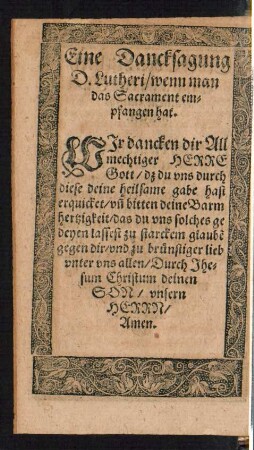 Eine Dancksagung
D. Lutheri/wenn man
das Sacrament em-
pfangen hat.
WIr dancken dir All
mechtiger HERRE
Gott/ dz du vns durch
diese deine heilsame gabe hast
erquicket/vñ bitten deine Barm
hertzigkeit/das du vns solches ge
deyen lassest zu starckem glaubē
gegen dir/vnd zu brünstiger lieb
vnter vns allen/Durch Jhe-
sum Christum deinen
SON/ vnsern
HERRN/
Amen.